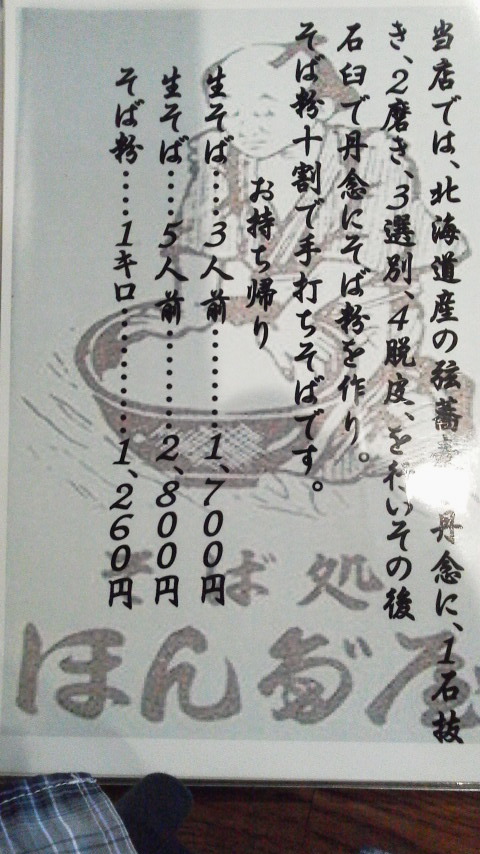 当店では、北海道産の弦蕎 丹念に、1石抜
き、2磨き、3選別、4脱皮、を行いその後
石臼で丹念にそば粉を作り。
そば粉十割で手打ちそばです。
お持ち帰り
生そば・・・・・3人前・・・・・・・・・1、700円
生そば・・・・・5人前・・・・・・・・・2、800円
そば粉・・・・・1キロ・・・・・・・・・・・1、260円
そば処
ほんぢ屋